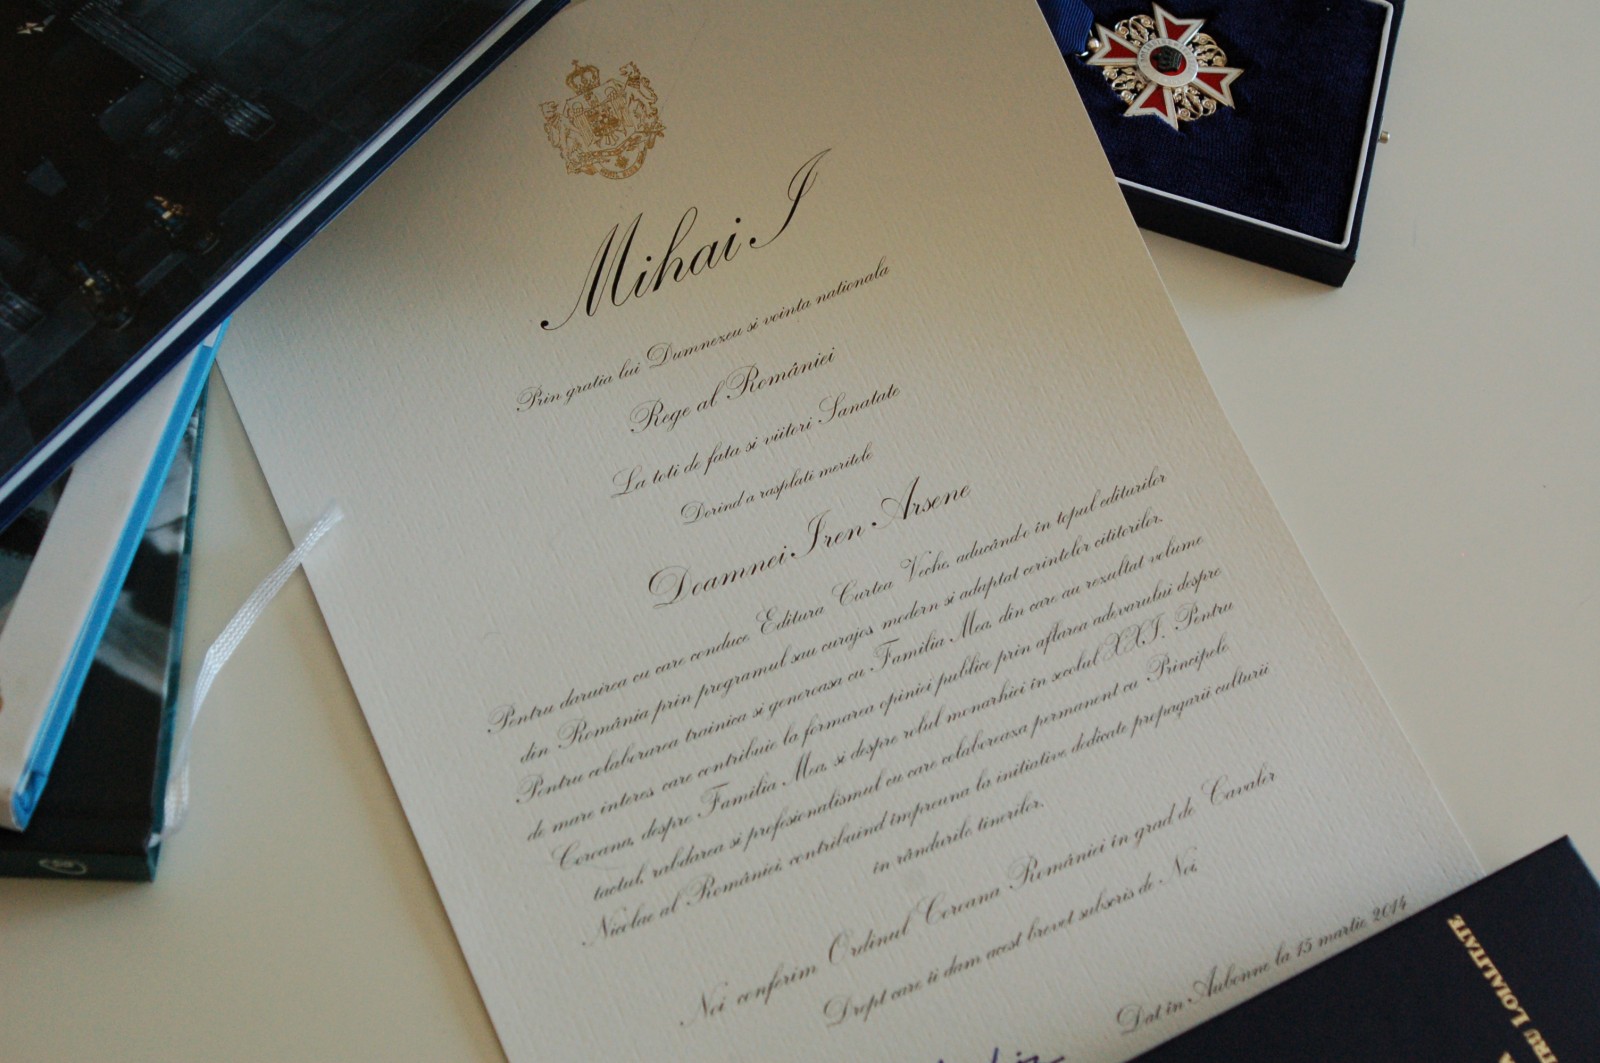 Mihai I
Prin gratia lui Dumnezeu si vointa nationala
Rege al României
La toti de fata si viitori Sanatate
Dorind a rasplati meritele
Doamnei Iren Arsene
Pentru daruirea cu care conduce Editura Curtea Veche, aducând-o în topul editurilor
din România prin programul sau curajos, modern si adaptat cerintelor cititorilor.
Pentru colaborarea trainica si generoasa cu Familia Mea, din care au rezultat volume
de mare interes, care contribuie la formarea opiniei publice prin aflarea adevarului despre
Coroana, despre Familia Mea, si despre rolul monarhiei în secolul XXI. Pentru
tactul, rabdarea si profesionalismul cu care colaboreaza permanent cu Principele
Nicolae al României, contribuind împreuna la initiative dedicate propagarii culturii
în rândurile tinerilor.
Noi conferim Ordinul Coroana României în grad de Cavaler
Drept care îi dam acest brevet subscris de Noi,
Dat în Aubonne la 15 martie 2014
TRU LOIALITATE